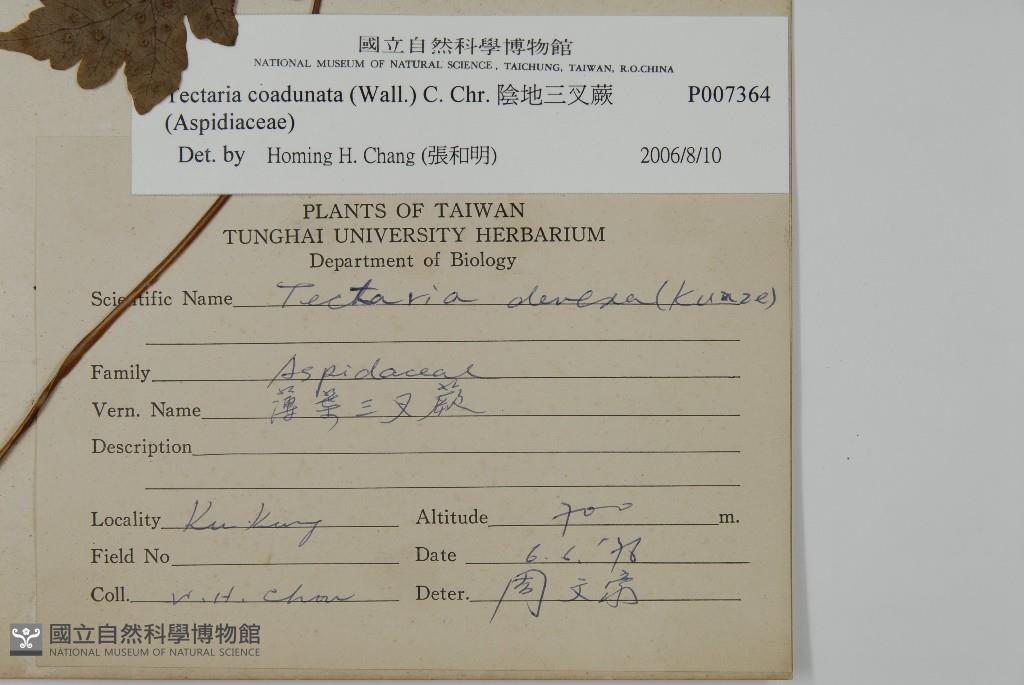 國立自然科學博物館
NATIONAL MUSEUM OF NATURAL SCIENCE, TAICHUNG, TAIWAN, R.O.CHINA
Tectaria coadunata (Wall.) C. Chr. 陰地三叉蕨 P007364
(Aspidiaceae)
Det. by Homing H. Chang (張和明) 2006/8/10
PLANTS OF TAIWAN
TUNGHAI UNIVERSITY HERBARIUM
Department of Biology
Scientific Name Tectaria devexa (Kunze)
Family Aspidaceae
Vern. Name 薄葉三叉蕨
Description
Locality Ku-Kung Altitude 700 m.
Field No
Date 6. 6. '76
Coll. W. H. Chou Deter. 周文
國立自然科學博物館
NATIONAL MUSEUM OF NATURAL SCIENCE